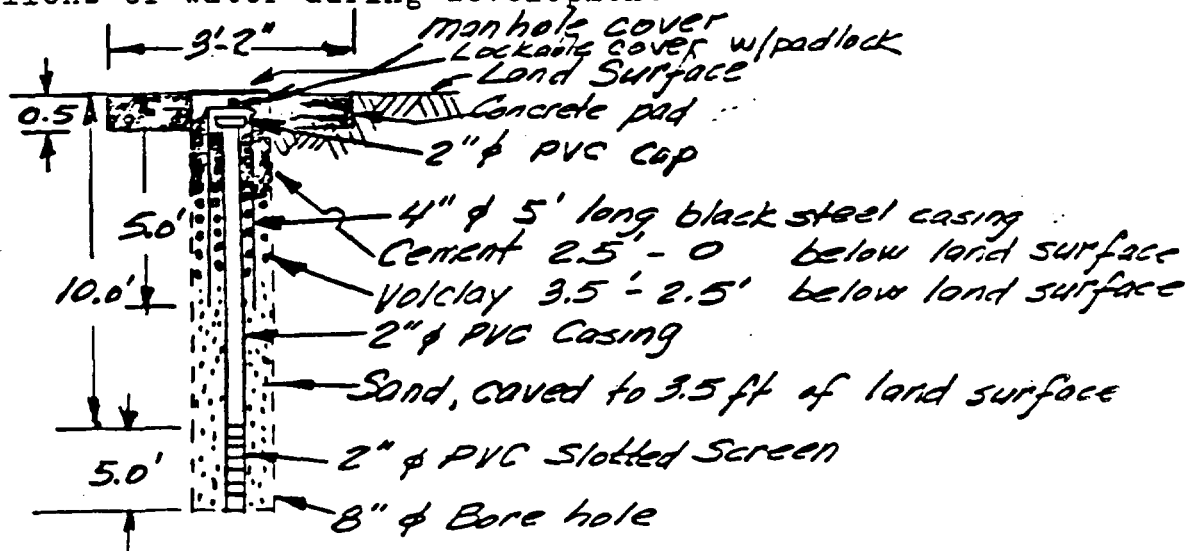 of water during development
manhole cover
3'-2"
Lockable cover w/padlock
Land Surface
0.5
Concrete pad
2" ϕ PVC Cap
5.0'
4" ϕ 5' long black steel casing
Cement 2.5' - 0 below land surface
10.0'
Volclay 3.5' - 2.5' below land surface
2" ϕ PVC Casing
Sand, caved to 3.5 ft of land surface
5.0'
2" ϕ PVC Slotted Screen
8" ϕ Bore hole